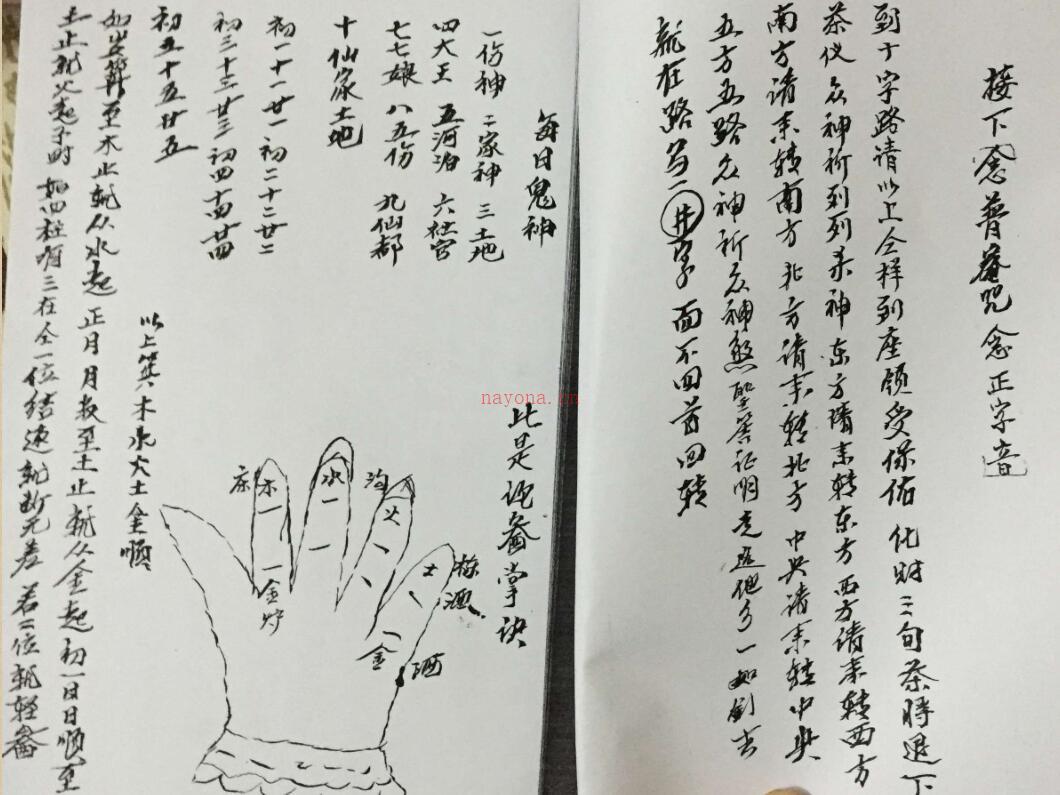 接下念普庵咒念正字音
到十字路请以上全样列座领受保佑 化财三旬茶时退下
茶仪众神祈列列杀神东方请来转东方西方请来转西方
南方请来转南方 北方请来转北方 中央请来转中央
五方五路众神祈众神煞聖答证明
龍在路写一井字 面不回首回转
每日鬼神
一伤神 二家神 三土地
四大王 五河泊 六社官
七七娘 八五伤 九仙都
十仙家土地
初一十一廿一初二十二廿二
初三十三廿三初四十四廿四
初五十五廿五
以上算木水火土金順
如岁算至木止就从水起 正月月数至土止就从金起初一日日順至
土止就火起子时 如四柱有三在仝一位结速就断无差 若二位就轻
此是 掌诀
木
水
火
土
金炉
金
酒
nayona.cn